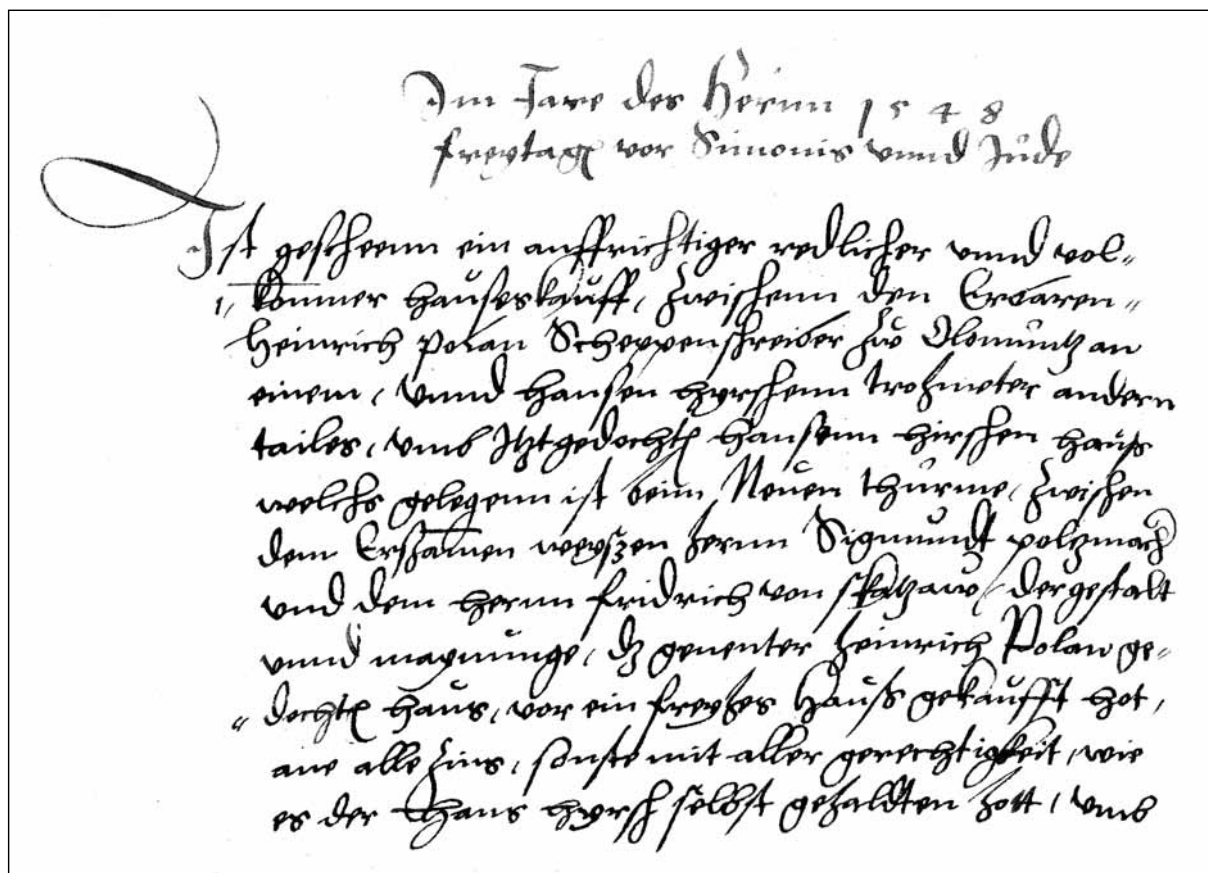 Im Jare des Herrnn 1548
freytag vor Simonis vnnd Jude
Ist gescheenn ein auffrichtiger redlicher vnnd vol-
kommer hauseskauff, zwischenn den Erbaren
Heinrich Polan Scheppenschreiber zw Olomuntz an
einem, vnnd Hansen Hyrschenn andern
tailes, vmb Itztgedochts Hansenn Hirschen hauß
welchs gelegenn ist beim Neuen thurme, zwischen
dem Erßamen weyszen hernn Sigmundt
vnd dem hernn fridrich von skatzaw, der gestalt
vnnd maynunge, dz genenter Heinrich Polan ge-
dochts haus, vor ein freyhes Hauß gekaufft hot,
ane alle zins, sonste mit aller gerechtigkeit, wie
es der Hans Hyrsch selbst gehaldten hott, vmb